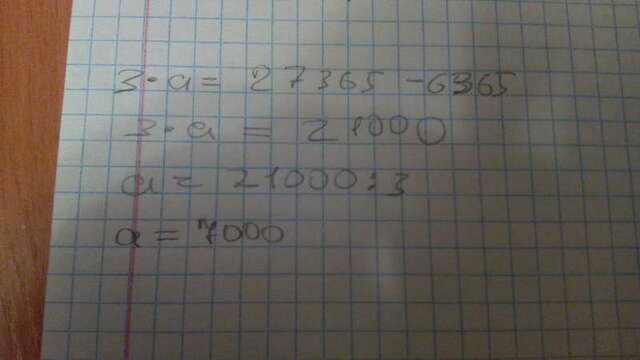 3·a= 27365 -6365
3·a = 21000
a = 21000:3
a = 7000